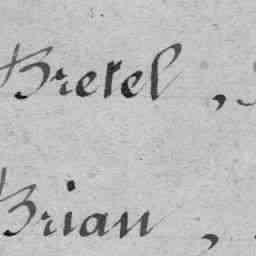 Bretel,
Brian,